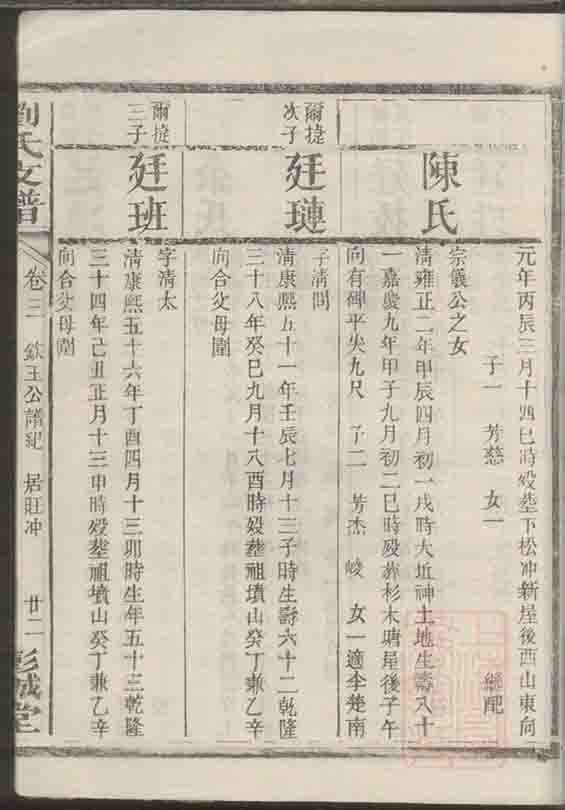 元年丙辰三月十四巳時歿塟下松冲新屋後西山東向
子一 芳慈 女一 繼配
陳氏
宗儀公之女
清雍正二年甲辰四月初一戌時大坵神土地生壽八十
一嘉慶九年甲子九月初二巳時歿塟杉木塘屋後子午
向有碑平尖九尺 子二 芳杰 峻 女一適李楚南
爾捷
次子
廷璉
字清問
清康熙五十一年壬辰七月十三子時生壽六十二乾隆
三十八年癸巳九月十八酉時歿塟祖墳山癸丁兼乙辛
向合父母圍
爾捷
三子
廷班
字清太
清康熙五十六年丁酉四月十三卯時生年五十三乾隆
三十四年己丑正月十三申時歿塟祖墳山癸丁兼乙辛
向合父母圍
劉氏支譜
卷三 欽玉公譜紀 居旺冲 廿二 彭城堂